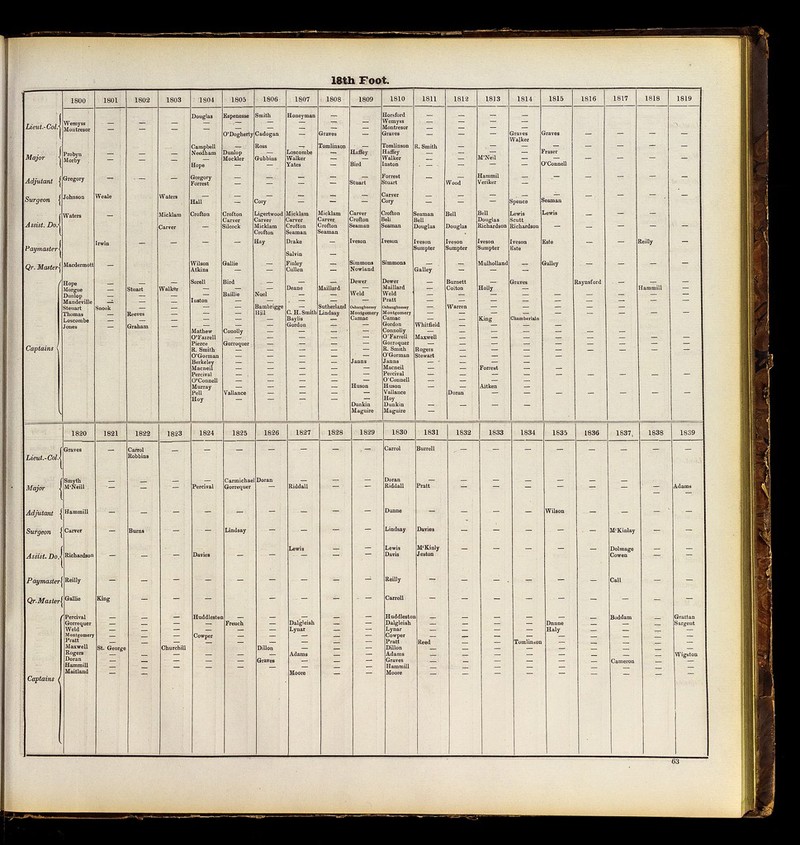 18th Foot.
1800 1801 1802 1803 1804 1805 1806 1807 1808 1809 1810 1811 1812 1813 1814 1815 1816 1817 1818 1819
Lieut.-Col.
Douglas Espenasse Smith Honeyman Horsford
Wemyss — — — — — — — — — Wemyss — — — —
Montresor — — — — — — — — — Montresor — — — —
O'Dogherty Cadogan — Graves — Graves — — — Graves Graves — — — —
Walker
Major
Campbell — Ross — Tomlinson — Tomlinson R. Smith — — — —
Probyn — — — Needham Dunlop — Loscombe — Haffey Haffey — — — — Fraser
Morby — — — — Mockler Gubbins Walker — — Walker — — M'Neil — —
Hope — — Yates — Bird Inston — — — — O'Connell
Adjutant
Gregory — — — Gregory — — — — — Forrest — — Hammil
Forrest — — — — Stuart Stuart — Wood Veriker — — — — — —
Surgeon
Johnson Weale — Waters — — — — — — Carver — — — — Seaman
Hall — Cory — — — Cory — — — Spence
Assist. Do.
Waters — — Micklam Crofton Crofton Ligertwood Micklam Micklam Carver Crofton Seaman Bell Bell Lewis Lewis — — — —
Carver — Carver Carver Carver Carver Crofton Bell Bell — Douglas Scott
Silcock Micklam Crofton Crofton Seaman Seaman Douglas Douglas Richardson Richardson — — — — —
Crofton Seaman Seaman
Paymaster
Irwin — — — — Hay Drake — Iveson Iveson Iveson Iveson Iveson Iveson Este — — Reilly —
Salvin — Sumpter Sumpter Sumpter Este
Qr. Master
Macdermott — — — Wilson Gallie — Finlay — Simmons Simmons — — Mulholland — Gulley — — — —
Atkins — — Cullen — Nowland Galley
Captains
Hope — — — Sorell Bird — — — Dewer Dewer — Burnett — Graves — Raynsford — — —
Morgue — Stuart Walker — — — Deane Maillard — Maillard — Colton Holly — — — — Hammill —
Dunlop — — — — Baillie Noel — — Weld Weld
Mandeville — — — Inston — — — — — Pratt
Steuart Snook — — — — Bambrigge — Sutherland Montgomery Warren
Thomas — Reeves — — — Hill C. H. Smith Lindsay Montgomery
Loscombe — — — — — — Baylis — Camac Camac — — King Chamberlain
Jones — Graham — — — — Gordon — — Gordon Whitfield
Mathew Conolly — — — — Connolly
O'Farrell — — — — — O'Farrell Maxwell
Pierce Gorroquer — — — — Gorroquer
R. Smith — — — — — R. Smith Rogers
O'Gorman — — — — — O'Gorman Stewart
Berkeley — — — — Janns Janns
Macneil — — — — — Macneil — — Forrest
Percival — — — — — Percival
O'Connell — — — — — O'Connell
Murray — — — — Huson Huson — — Aitken
Pell Vallance — — — — Vallance — Doran
Hoy — — — — — Hoy
Dunkin Dunkin
Maguire Maguire
1820 1821 1822 1823 1824 1825 1826 1827 1828 1829 1830 1831 1832 1833 1834 1835 1836 1837 1838 1839
Lieut.-Col.
Graves — Carrol — — — — — — — Carrol Burrell — — — — — — — —
Robbins
Major
Smyth — — — — Carmichael Doran — — — Doran
M'Neill — — — Percival Gorrequer — Riddall — — Riddall Pratt — — — — — — — Adams
Adjutant
Hammill — — — — — — — — — Dunne — — — — Wilson — — — —
Surgeon
Carver — Burns — — Lindsay — — — — Lindsay Davies — — — — — M'Kinlay — —
Assist. Do.
Lewis — — Lewis M'Kinly — — — — — Dolmage — —
Richardson — — — Davies — — — — — Davis Jeston Cowen — —
Paymaster
Reilly — — — — — — — — — Reilly — — — — — — Call — —
Qr. Master
Gallie King — — — — — — — — Carroll — — — — — — — — —
Captains
Percival — — — Huddleston — — — — — Huddleston — — — — — — Boddam — Grattan
Gorrequer — — — — French — Dalgleish — — Dalgleish — — — — Duane — — — Sargent
Weld — — — — — — Lynar — — Lynar — — — — Haly
Montgomery — — — Cowper — — — — — Cowper
Pratt — — — — — — — — — Pratt Reed — — Tomlinson
Maxwell St. George — Churchill — — Dillon — — — Dillon
Rogers — — — — — — Adams — — Adams — — — — — — — — Wigston
Doran — — — — — Graves — — — Graves — — — — — — Cameron
Hammill — — — — — — — — — Hammill
Maitland Moore — — Moore
63